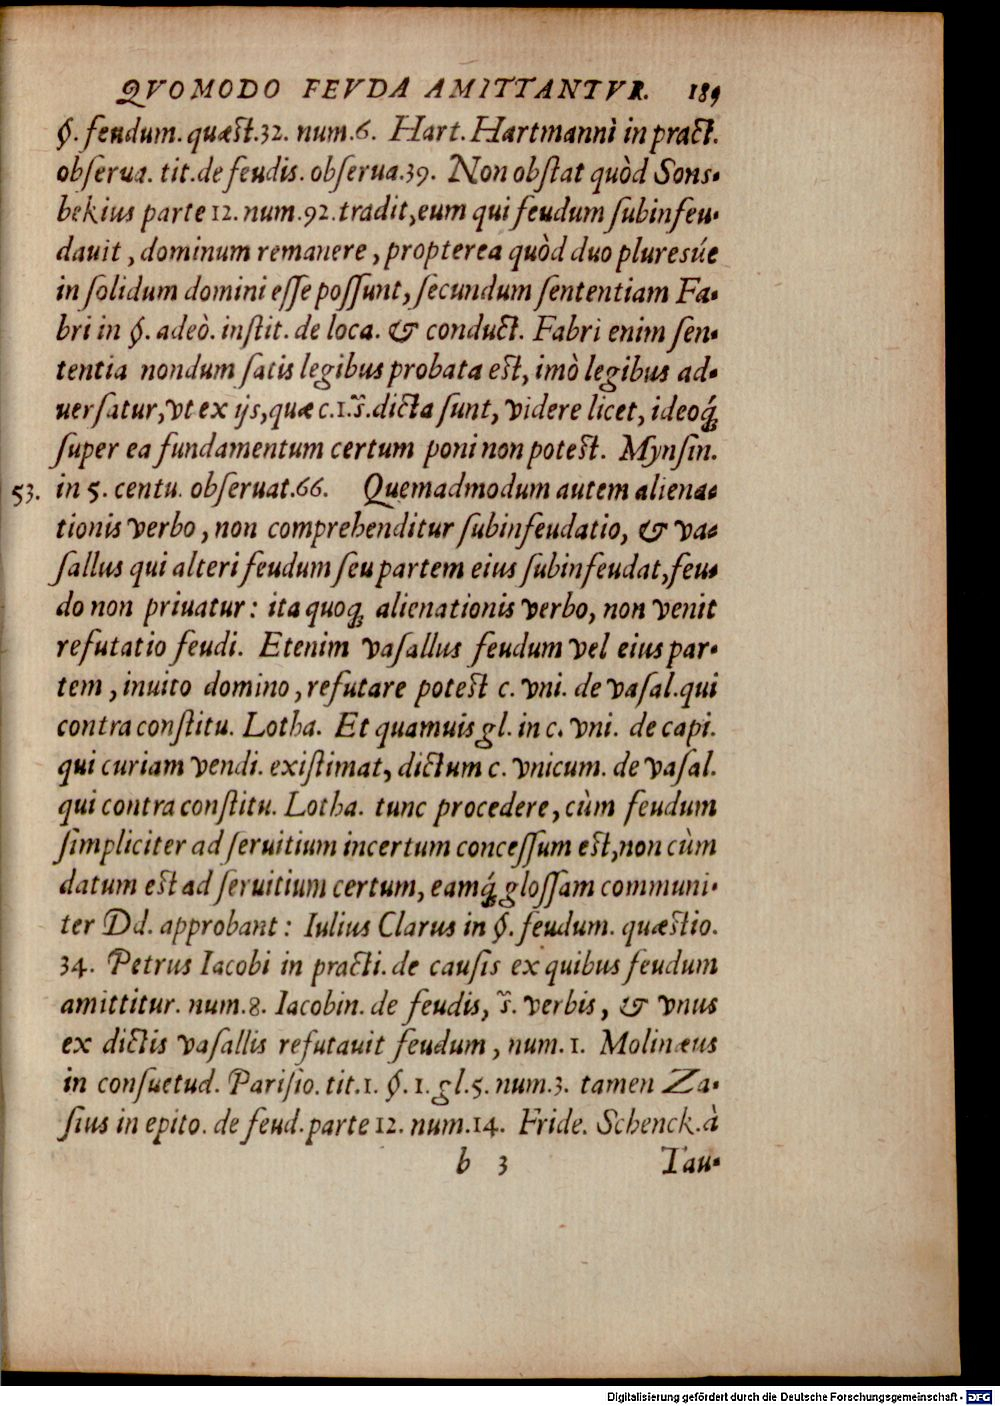 QVOMODO FEVDA AMITTANTVR. 189
§. feudum. quæst.32. num.6. Hart. Hartmannì in pract.
obſerua. tit. de feudis. obſerua.39. Non obſtat quòd Sons-
bekius parte 12. num.92. tradit, eum qui feudum ſubinfeu-
dauit, dominum remanere, propterea quòd duo pluresúe
in ſolidum domini eſſe poſſunt, ſecundum ſententiam Fa-
bri in §. adeò. inſtit. de loca. & conduct. Fabri enim ſen-
tentia nondum ſatis legibus probata est, imò legibus ad-
uerſatur, vt ex ijs, quæ c.1.s̃. dicta ſunt, videre licet, ideoq́;
ſuper ea fundamentum certum poni non potest. Mynſin.
53. in 5. centu. obſeruat.66. Quemadmodum autem aliena-
tionis verbo, non comprehenditur ſubinfeudatio, & va-
ſallus qui alteri feudum ſeu partem eius ſubinfeudat, feu-
do non priuatur: ita quoq; alienationis verbo, non venit
refutatio feudi. Etenim vaſallus feudum vel eius par-
tem, inuito domino, refutare potest c. vni. de vaſal. qui
contra conſtitu. Lotha. Et quamuis gl. in c. vni. de capi.
qui curiam vendi. exiſtimat, dictum c. vnicum. de vaſal.
qui contra conſtitu. Lotha. tunc procedere, cùm feudum
ſimpliciter ad ſeruitium incertum conceſſum est, non cùm
datum est ad ſeruitium certum, eamq́; gloſſam communi-
ter Dd. approbant: Iulius Clarus in §. feudum. quæstio.
34. Petrus Iacobi in practi. de cauſis ex quibus feudum
amittitur. num.8. Iacobin. de feudis, s̃. verbis, & vnus
ex dictis vaſallis refutauit feudum, num.1. Molinæus
in conſuetud. Pariſio. tit.1. §. 1. gl.5. num.3. tamen Za-
ſius in epito. de feud. parte 12. num.14. Fride. Schenck. à
b 3 Tau-
Digitalisierung gefördert durch die Deutsche Forschungsgemeinschaft - DFG